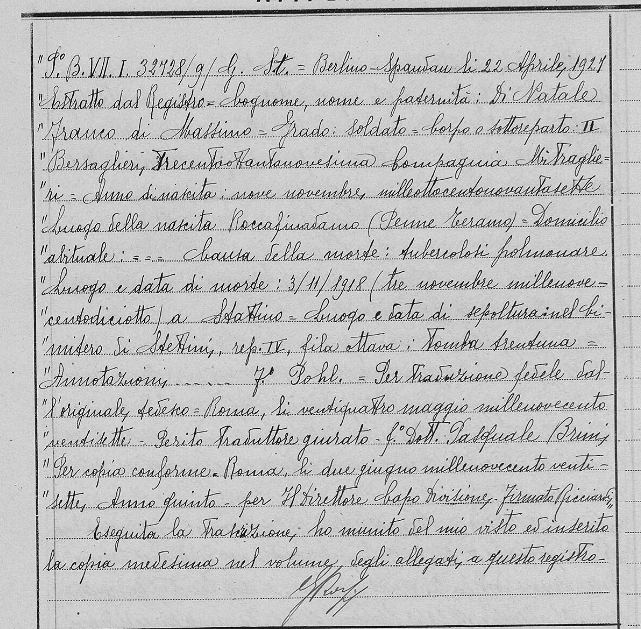 "F.° B. VII. I. 32728/9/ G. St. = Berlino-Spandau li 22 Aprile, 1927
"Estratto dal Registro = Cognome, nome e paternità: Di Natale
"Franco di Massimo = Grado: soldato = Corpo o sottoreparto: II
"Bersaglieri, Trecentottantanovesima Compagnia Mitraglie-
"ri = Anno di nascita: nove novembre, milleottocentonovantasette
"Luogo della nascita Roccafinadamo (Penne Teramo) = Domicilio
"abituale: = = = Causa della morte: tubercolosi polmonare.
"Luogo e data di morte: 3/11/1918 (tre novembre millenove-
"centodiciotto) a Stettino = Luogo e data di sepoltura: nel Ci-
"mitero di Stettini, rep. IV, fila ottava: Tomba trentuna =
"Annotazioni, ...... F.° Pohl. = Per traduzione fedele dal-
"l'originale, tedesco = Roma, li ventiquattro maggio millenovecento
"ventisette = Perito Traduttore giurato - f.° Dott. Pasquale Brini,
"Per copia conforme = Roma, li due giugno millenovecento venti-
"sette, Anno quinto - per Il Direttore Capo Divisione, Firmato Ricciardi,"
Eseguita la Trascrizione, ho munito del mio visto ed inserito
la copia medesima nel volume, degli allegati, a questo registro-